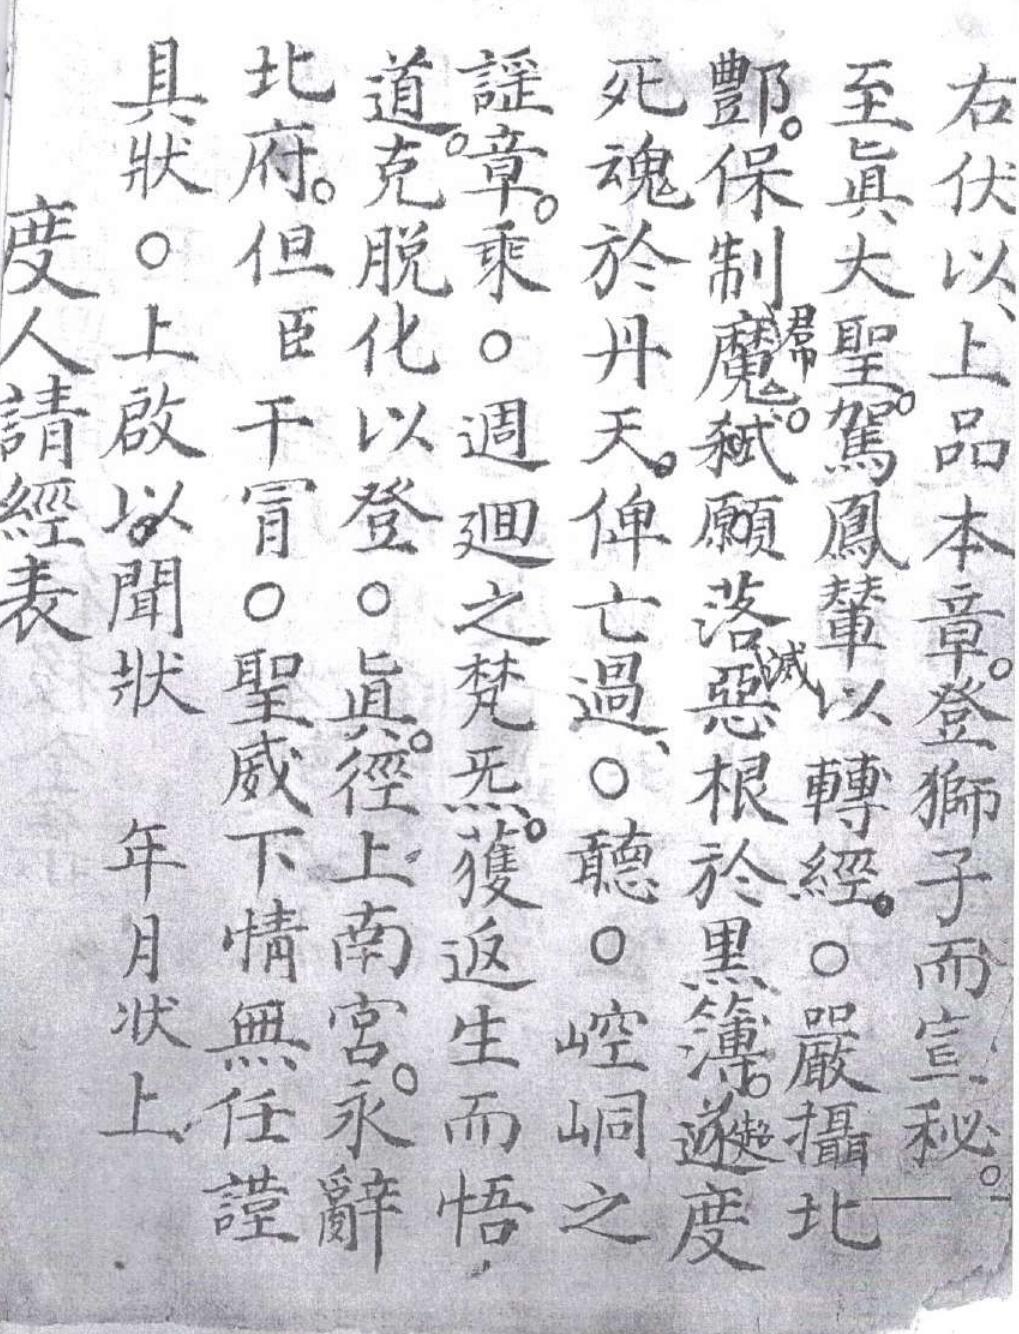 右伏以上品本章。登獅子而宣秘。
至眞大聖。駕鳳輦以轉經。○嚴攝北
酆。保制魔君帝。弒願落滅惡根於黑簿。遂超度
死魂於丹天。俾亡過、○聽○崆峒之
謡章。乘○週廻之梵炁。獲返生而悟
道。克脱化以登○眞。徑上南宮。永辭
北府。但臣干冒○聖威下情無任謹
具狀○上啟以聞狀 年月状上
度人請經表